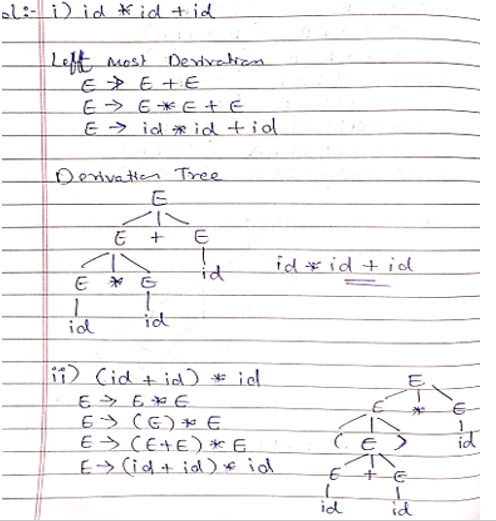 ol:- i) id * id + id
Left Most Derivation
E → E + E
E → E * E + E
E → id * id + id
Derivation Tree
E
E + E
E * E id
id id
id * id + id
ii) (id + id) * id
E → E * E
E → (E) * E
E → (E+E) * E
E → (id + id) * id
E
E * E
( E ) id
E + E
id id